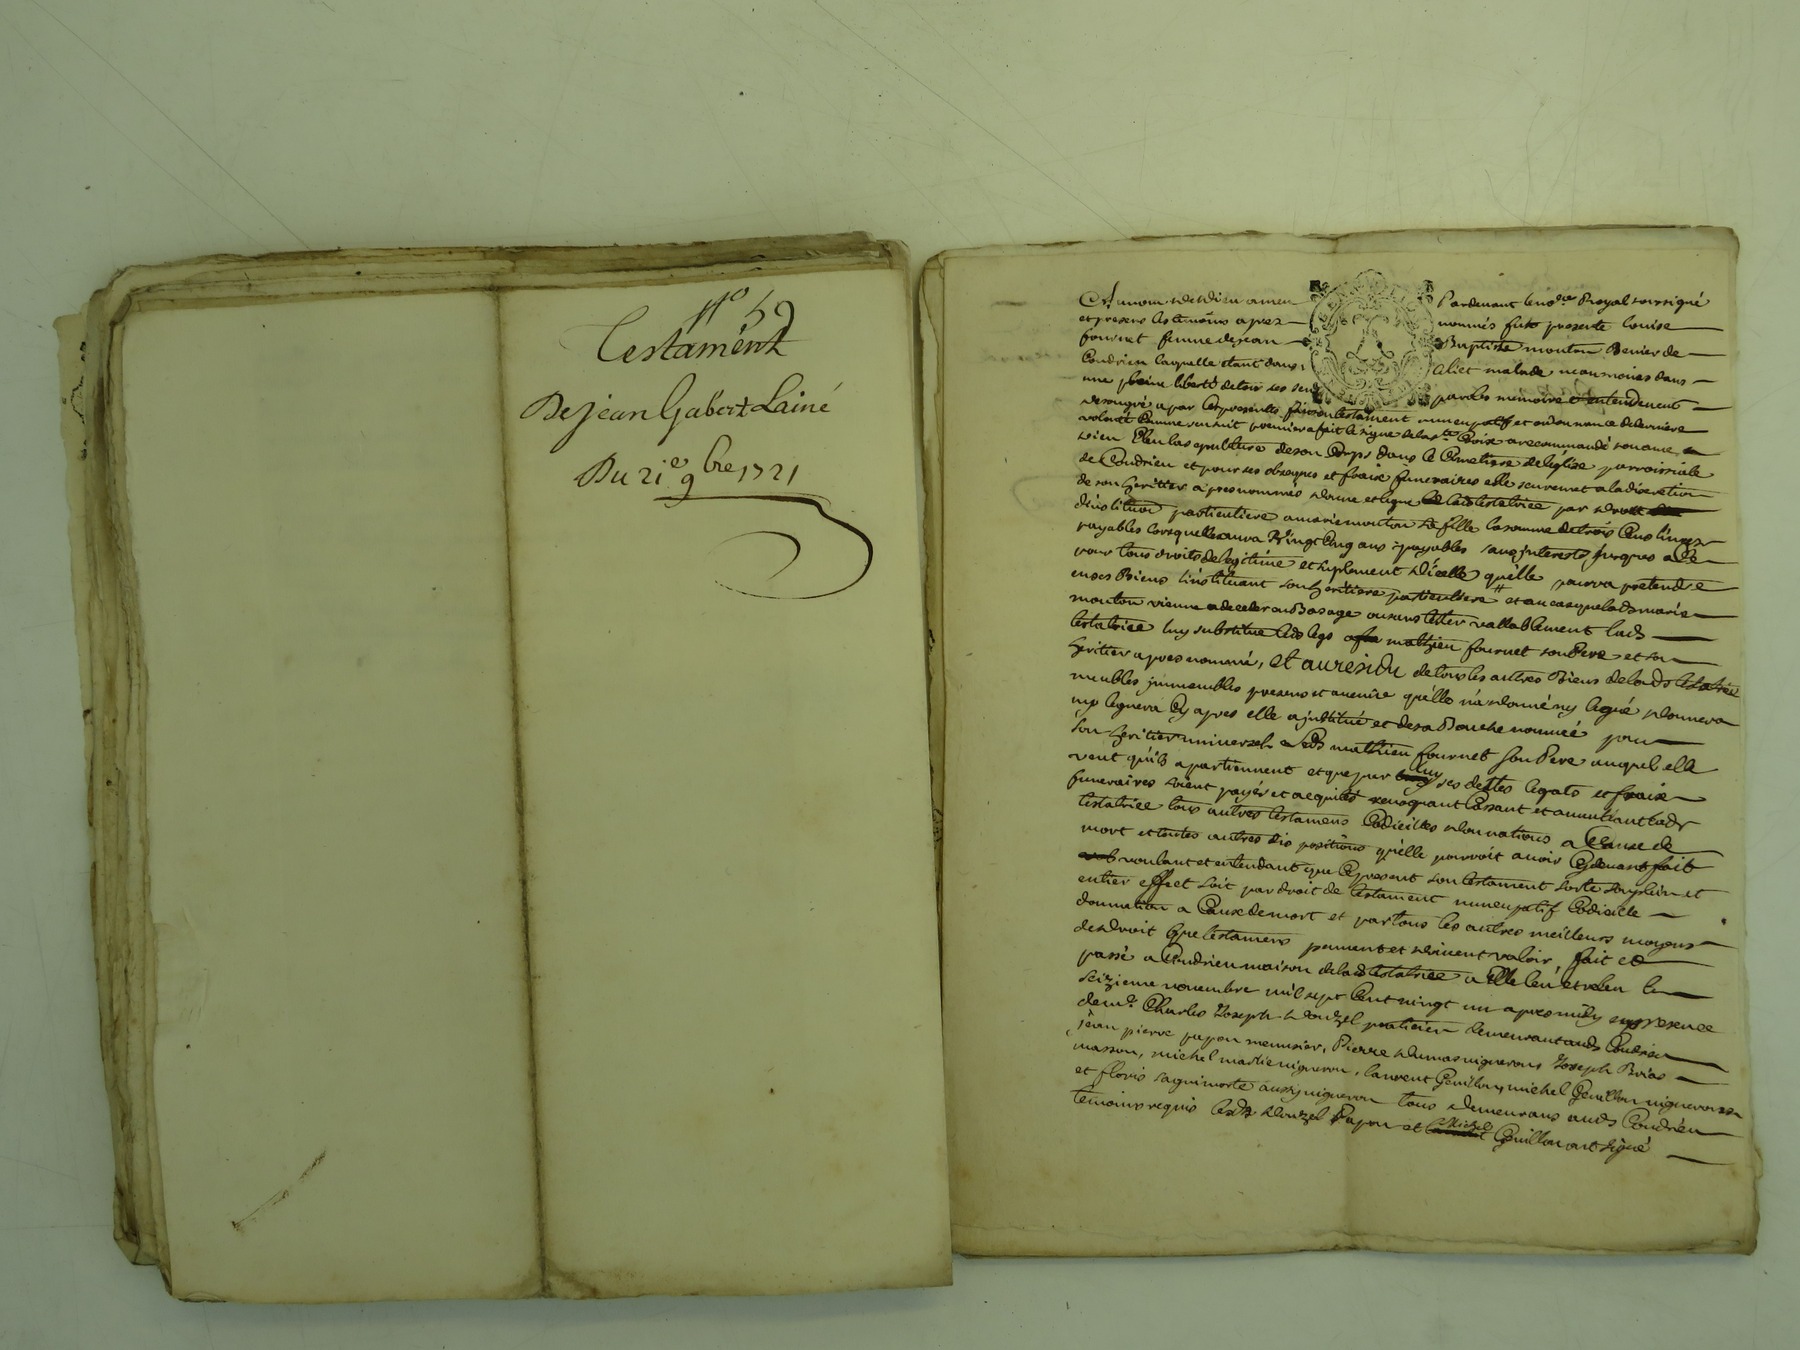 N° 59
Testament
De Jean Gabert Lainé
Du 21e 9bre 1721
Au nom de dieu amen Pardevant le no.re Royal soussigné
et presens les temoins apres nommés fut presente Louise
fournet femme de jean Baptiste mouton Benier de
Condrieu laquelle etant dans, a liet malade neanmoins dans
une pleine liberté de tous ses sens parole memoire et entendement
de son gré a par les presentes fait son testament nuncupatif et ordonnance de derniere
volonté comme sensuit premier a fait le signe de la ste Croix a recommandé son ame a
dieu Eleu la sepulture de son Corps dans le Cimetiere de leglise parroissiale
de Condrieu et pour ses obseques et fraix funeraires elle sen remet a la discretion
de son heritier apres nommé donne et legue lad testatrice par droit
dinstitution particuliere a marie mouton sa fille la somme de trois Cens livres
payables lorsquelle aura Vingt Cinq ans payables sans interests jusques a Ce
pour tous droits de legitime et suplement dicelle quelle pourra pretendre
en ses Biens linstituant son heritiere particuliere # et au cas que lad marie
mouton vienne a deceder en Bas age ou sans tester vallablement lad
testatrice luy substitue led legs a mathieu fournet son Pere et son
heritier apres nommé, et au residu de tous les autres Biens de lad testatrice
meubles jmmeubles presens et avenir quelle n'a donné ny legué donnera
ny leguera Cy apres elle a jnstitué et de sa Bouche nommé pour
son heritier universel led mathieu fournet son Pere auquel elle
veut quils apartiennent et que par luy ses dettes legats et fraix
funeraires soient payés et acquités revoquant Cassant et annullant lad
testatrice tous autres testamens Codicilles donnations a Cause de
mort et toutes autres dis positions quelle pourroit avoir Cydevant fait
voulant et entendant que Ce present son testament sorte son plein et
entier effet soit par droit de testament nuncupatif Codicille
donnation a Cause de mort et par tous les autres meilleurs moyens
de droit que testamens peuvent et doivent valoir, fait et
passé a Condrieu maison de lad testatrice a Elle leu et releu le
seizieme novembre mil sept Cent vingt un apres midy en presence
de m.e Charles Joseph Douzel praticien demeurant aud Condrieu
jean pierre papon menusier, Pierre Dumas vigneron Joseph Brias
masson, michel martie vigneron, laurent Genillon, michel Genillon vignerons
et floris saguimorte aussy vigneron tous demeurans aud Condrieu
temoins requis lesd Douzel Papon et Michel Genillon ont signé